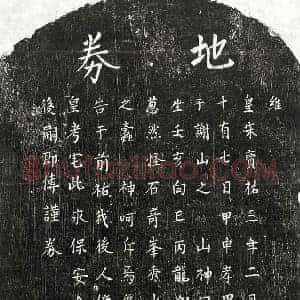 地券
維
皇宋寶祐三年二月
十有七日甲申孝
于謝山之山神
坐壬亥向巳丙龍
蔥然怪石奇峯秀山
之神呵斥焉
告于前祐我後人
皇考宅此永保安
後嗣傳謹券